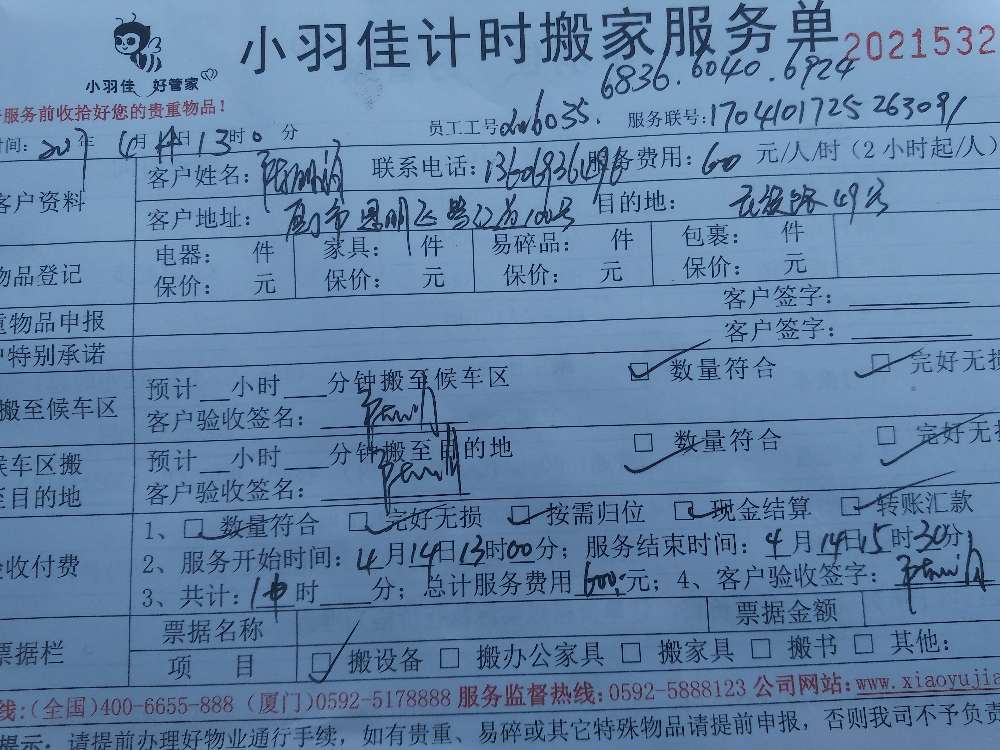 小羽佳计时搬家服务单
2021532
小羽佳 好管家
服务前收拾好您的贵重物品！
6836.6040.6924
员工工号 6035. 服务联号：1704101725263091
时间：2017年4月14日13时0分
客户资料 客户姓名： 联系电话： 服务费用：600元/人/时（2小时起/人）
客户地址：厦门市思明 目的地： 49号
物品登记 电器： 件 家具： 件 易碎品： 件 包裹： 件
保价： 元 保价： 元 保价： 元 保价： 元
重物品申报 客户签字：
户特别承诺 客户签字：
搬至候车区 预计 小时 分钟搬至候车区 数量符合 完好无损
客户验收签名：
候车区搬至目的地 预计 小时 分钟搬至目的地 数量符合 完好无损
客户验收签名：
验收付费 1、 数量符合 完好无损 按需归位 现金结算 转账汇款
2、服务开始时间：4月14日13时00分；服务结束时间：4月14日15时30分
3、共计： 时 分；总计服务费用600元；4、客户验收签字：
票据栏 票据名称 票据金额
项 目 搬设备 搬办公家具 搬家具 搬书 其他：
线：(全国)400-6655-888 (厦门)0592-5178888 服务监督热线：0592-5888123 公司网站：www.xiaoyujia
提示：请提前办理好物业通行手续，如有贵重、易碎或其它特殊物品请提前申报，否则我司不予负责